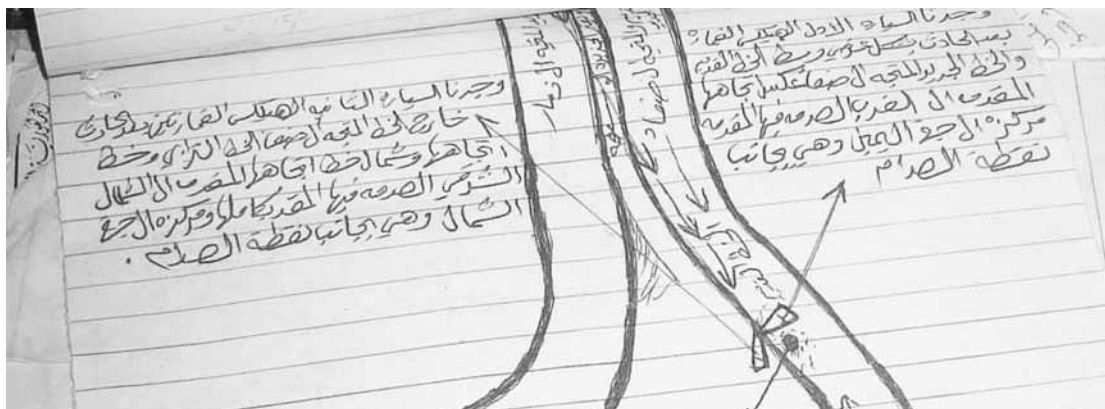 وجدنا السياره الاول الهيلكس الغماره
بعد الحادث بشكل عرضي وسط الخط القديم
والخط الجديد المتجه الى صنعاء عكس اتجاهها
المقدمه الى الغرب الصدمه فيها المقدمه
مركزه الى جهة اليمين وهي بجانب
نقطة الصدام
وجدنا السياره الثانيه الهيلكس الغمارتين بعد الحادث
خارج الخط المتجه الى صنعاء الخط الترابي وخط
اتجاهها وشمال خط اتجاهها المقدمه الى الشمال
الشرقي الصدمه فيها المقدمه كاملها ومركزه الى جهة
الشمال وهي بجانب نقطة الصدام .
المتجه الى صنعاء